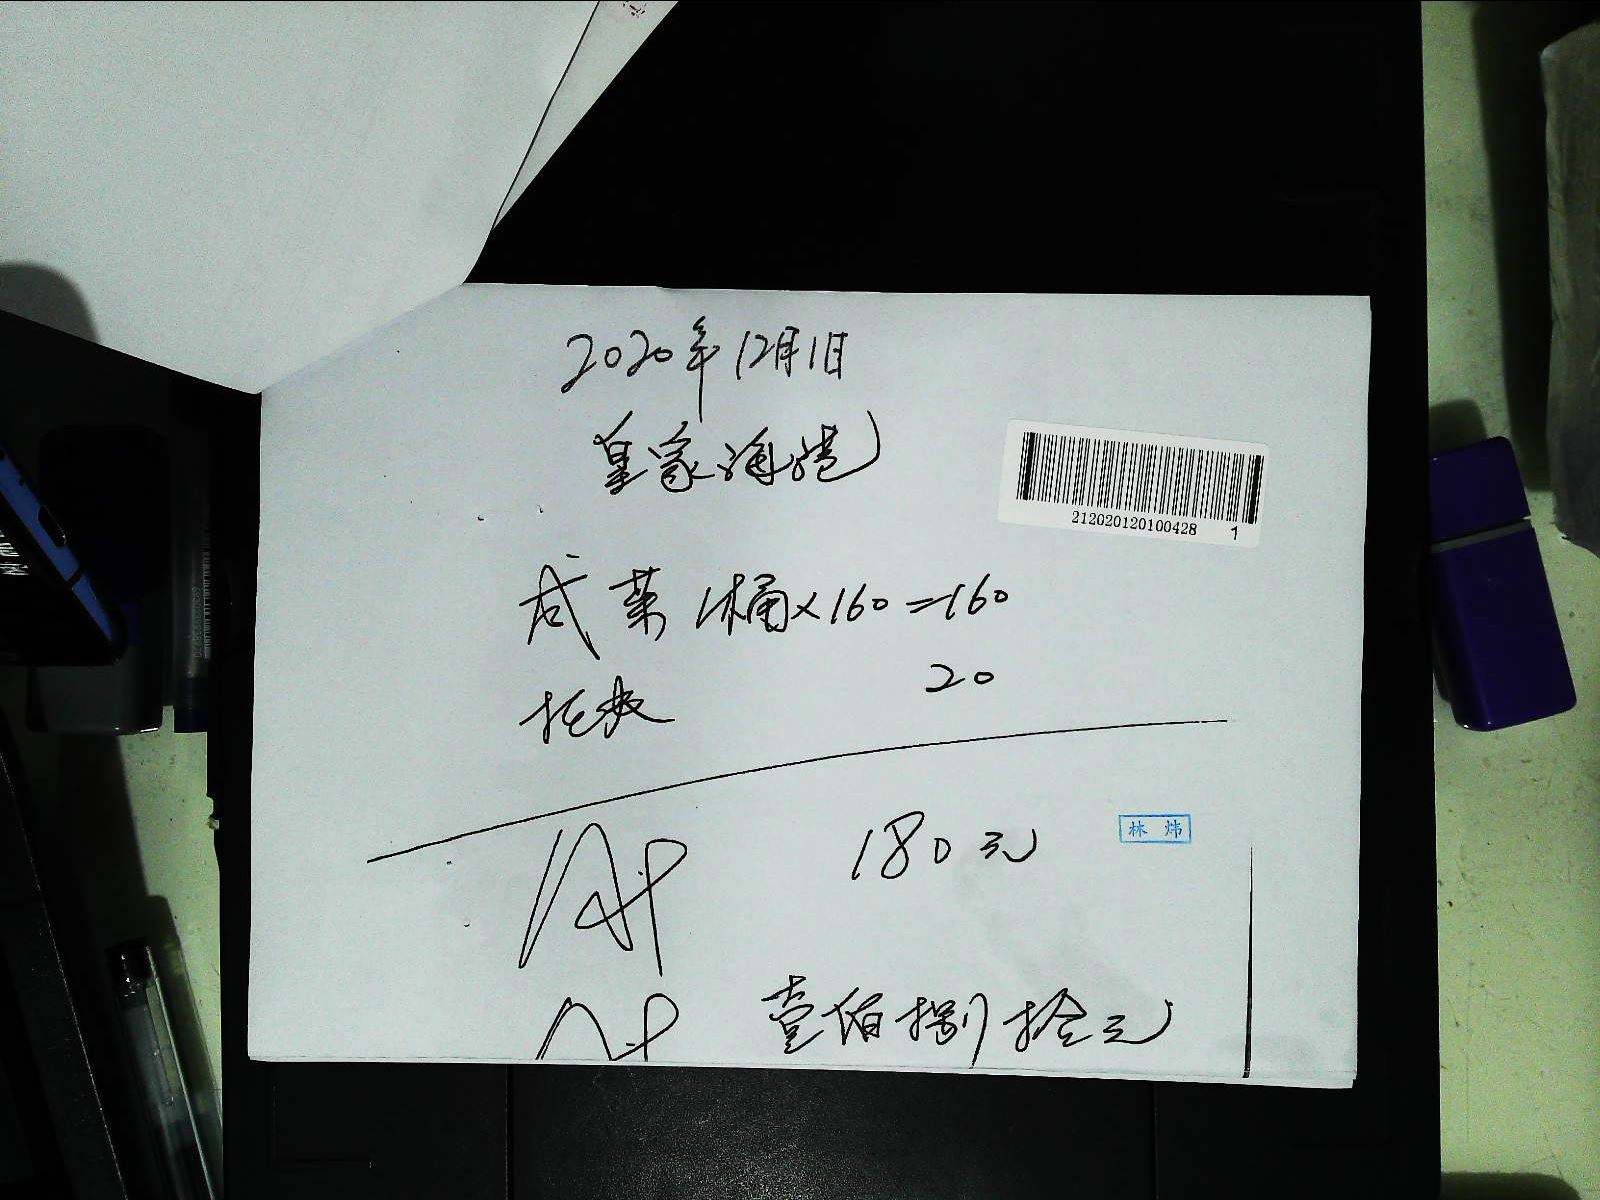 2020年12月1日
皇家海港
212020120100428 1
咸菜 1桶×160=160
托运 20
180元
林 炜
壹佰捌拾元